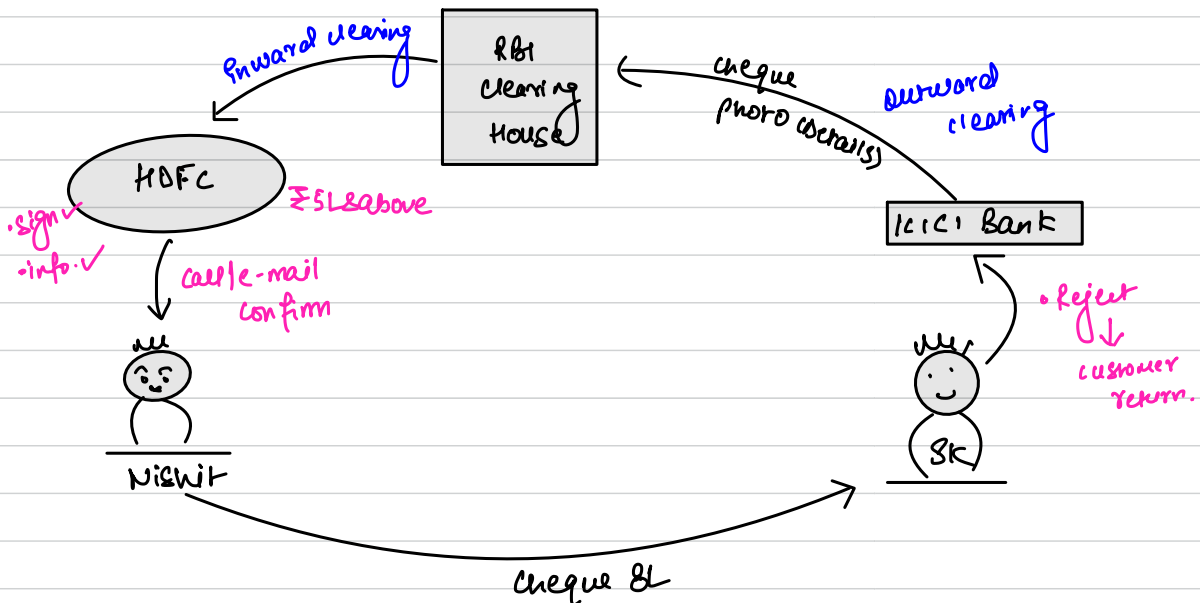 Inward clearing
RBI
clearing
House
cheque
photo (details)
outword
clearing
HDFC
₹5L & above
• sign ✓
• info. ✓
call/e-mail
confirm
ICICI Bank
• Reject
customer
return.
Nishit
SK
cheque 8L